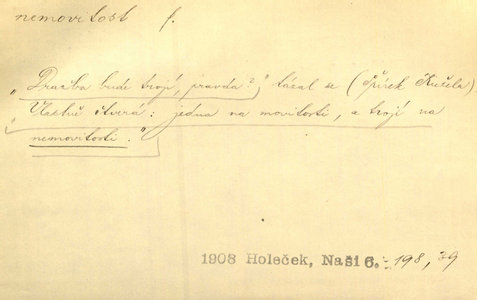 nemovitost f.
„Dražba bude trojí, pravda?“, tázal se (Špírek Kužela)
„Vlastně čtverá: jedna na movitosti, a trojí na
nemovitosti.“
1908 Holeček, Naši 6. 198, 39